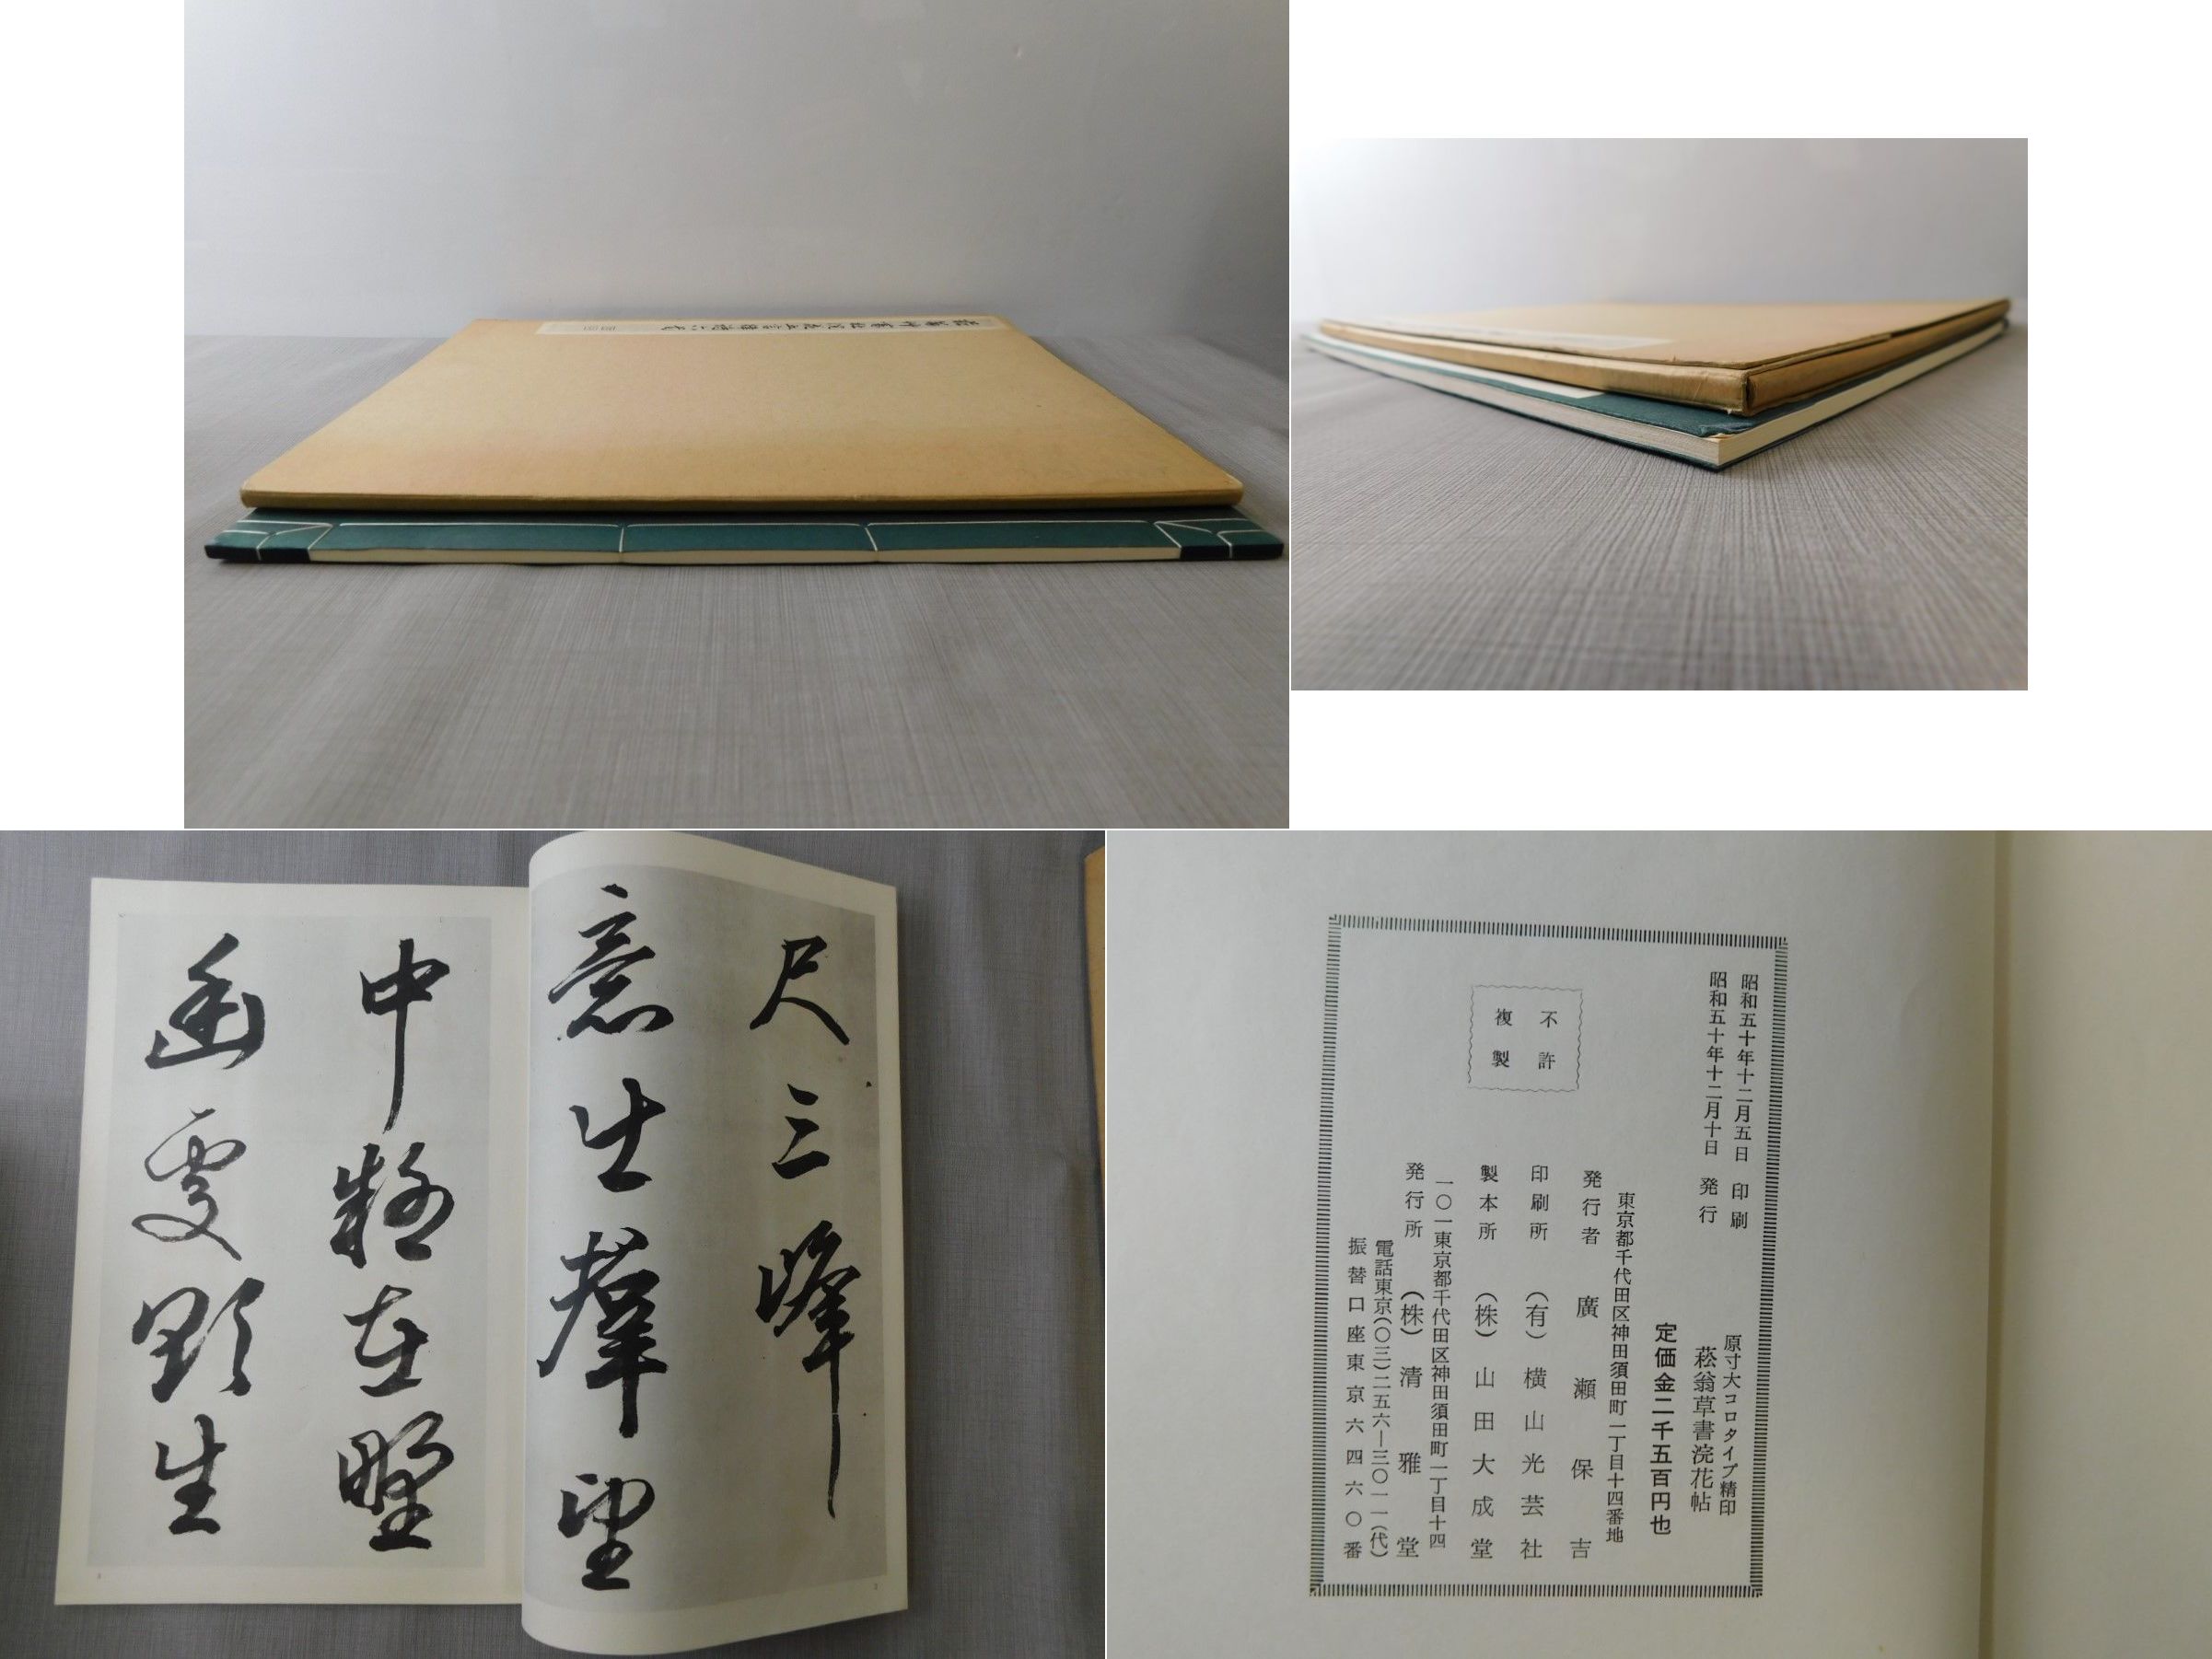 尺三峰
意出羣望
中 在
生
昭和五十年十二月五日 印刷
昭和五十年十二月十日 発行
原寸大コロタイプ精印
菘翁草書浣花帖
定価金二千五百円也
東京都千代田区神田須田町一丁目十四番地
発行者 廣瀬保吉
印刷所 (有)横山光芸社
製本所 (株)山田大成堂
一〇一東京都千代田区神田須田町一丁目十四
発行所 (株)清雅堂
電話東京(〇三)二五六―三〇一一(代)
振替口座東京六四六〇番
不許
複製